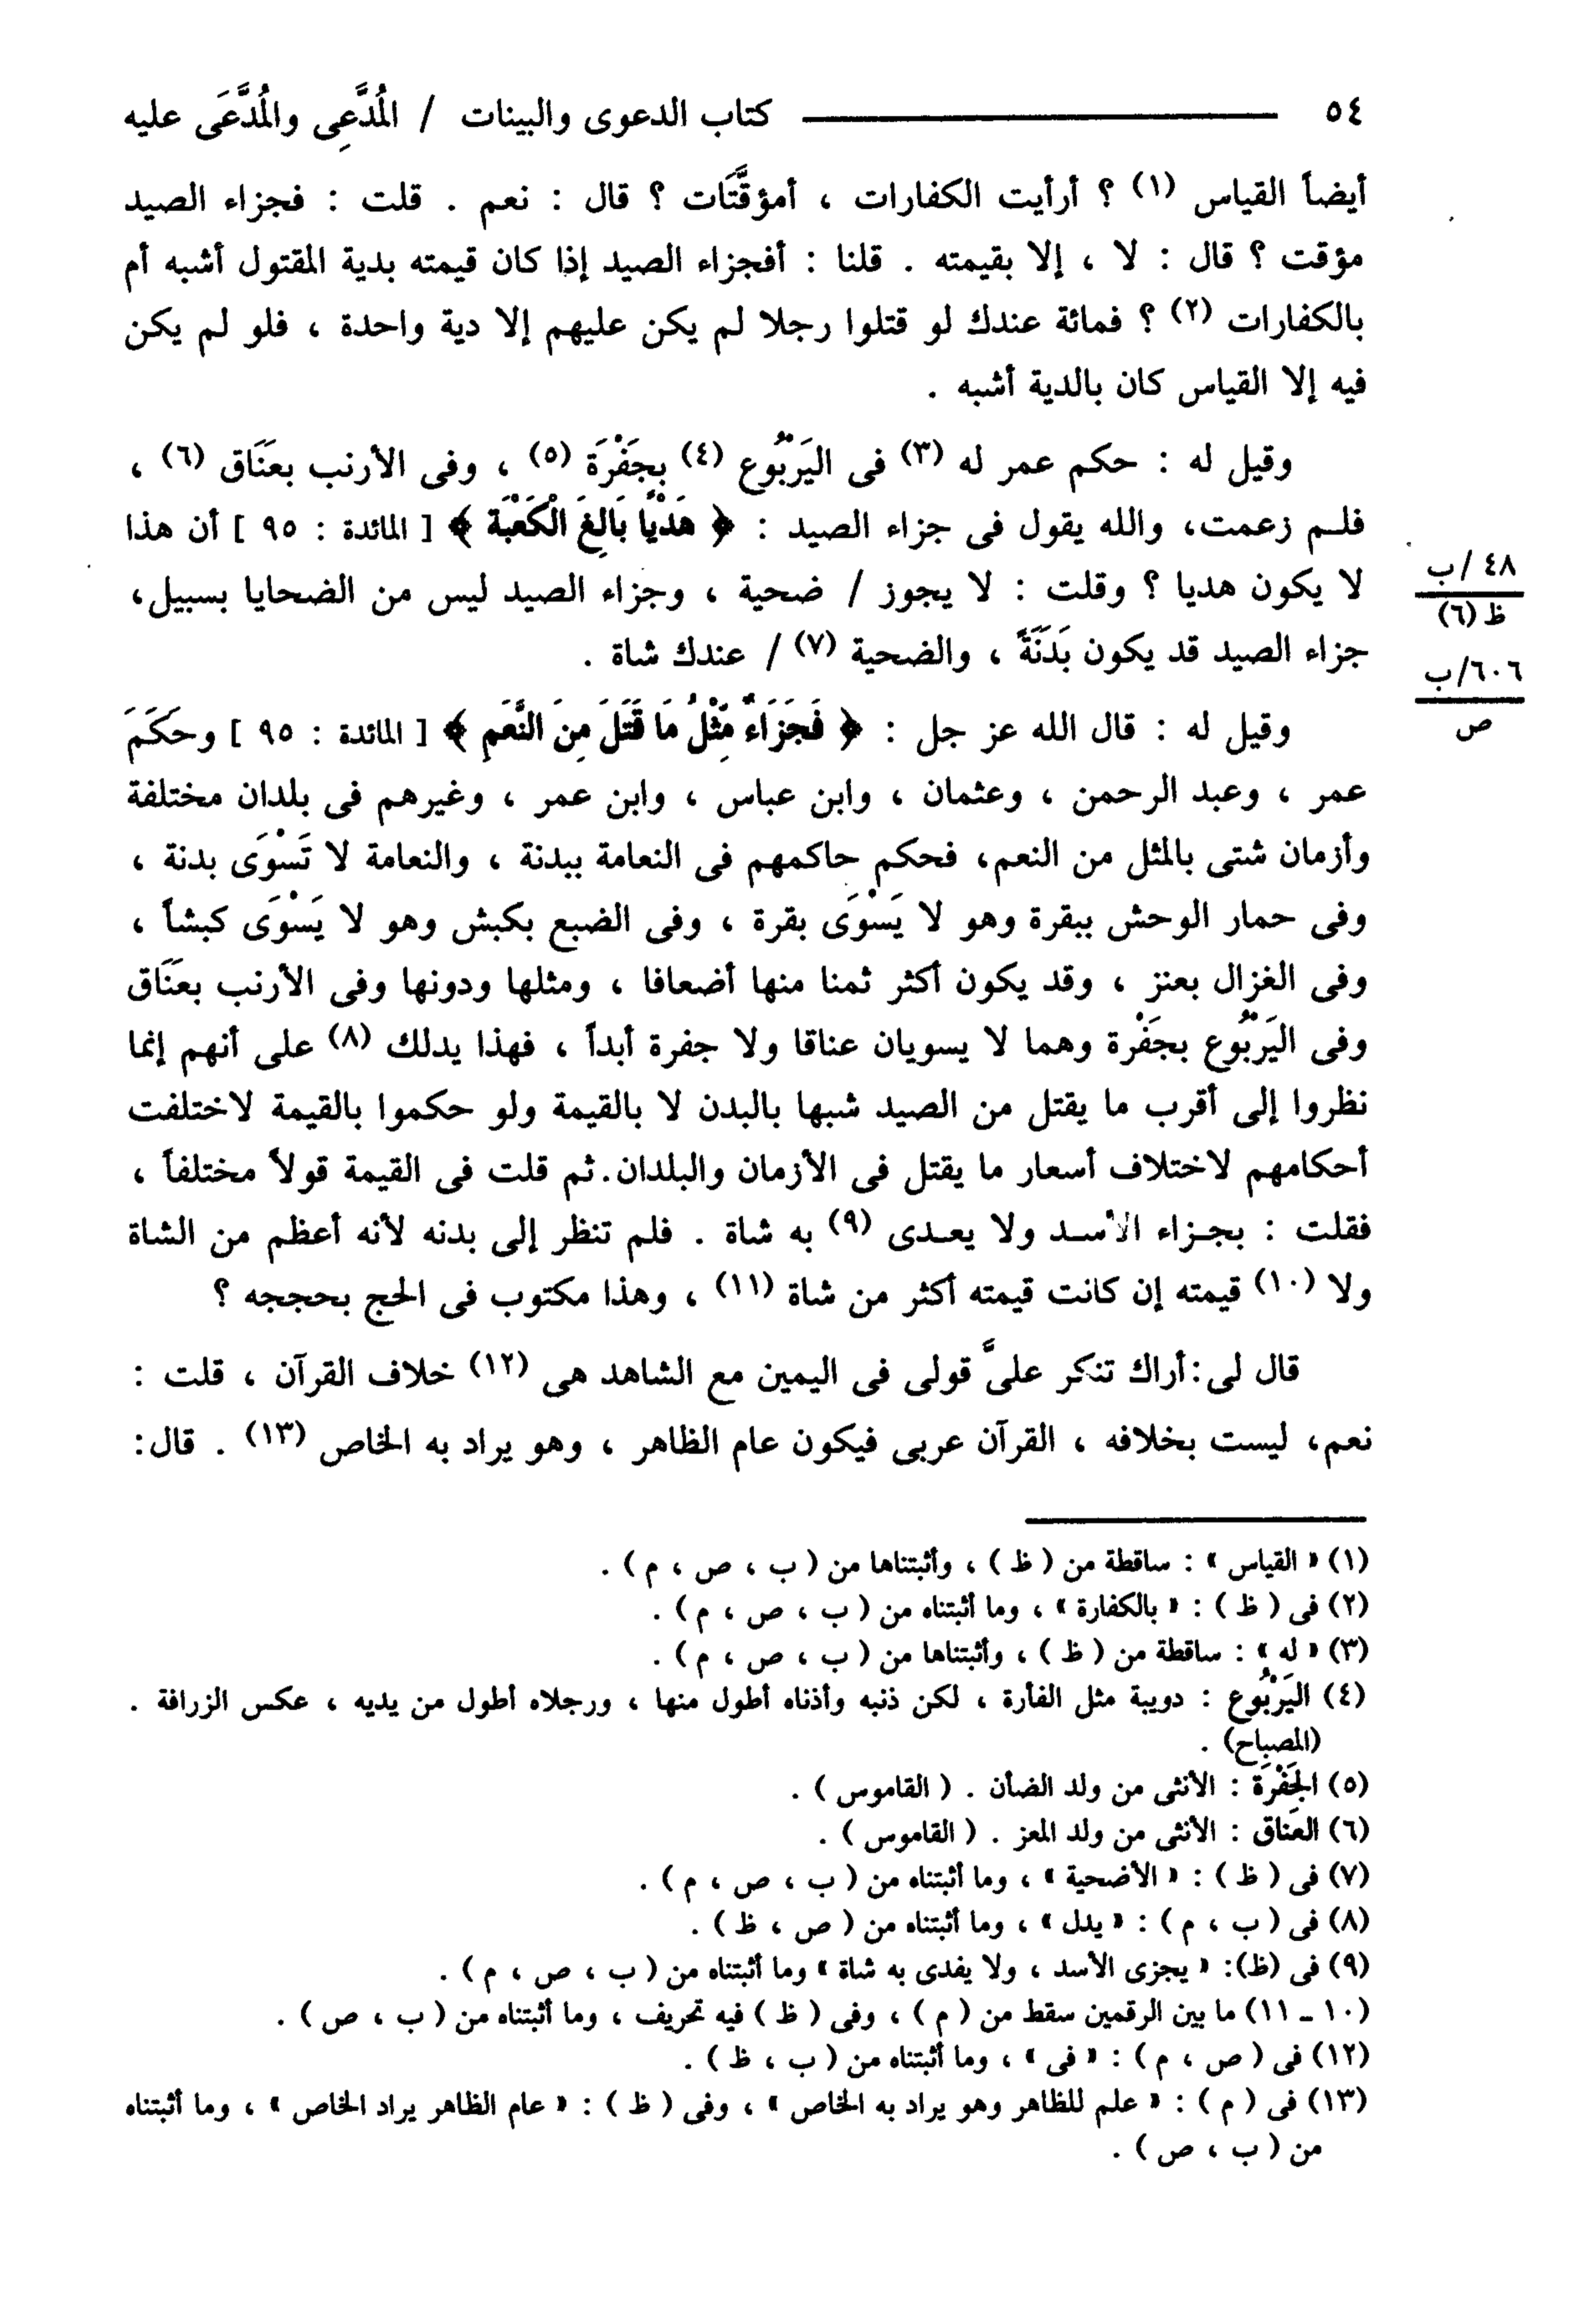 ٥٤ كتاب الدعوى والبينات / المُدَّعِى والمُدَّعَى عليه
أيضاً القياس (١) ؟ أرأيت الكفارات ، أمؤقَّتَات ؟ قال : نعم . قلت : فجزاء الصيد
مؤقت ؟ قال : لا ، إلا بقيمته . قلنا : أفجزاء الصيد إذا كان قيمته بدية المقتول أشبه أم
بالكفارات (٢) ؟ فمائة عندك لو قتلوا رجلا لم يكن عليهم إلا دية واحدة ، فلو لم يكن
فيه إلا القياس كان بالدية أشبه .
وقيل له : حكم عمر له (٣) فى اليَرْبُوع (٤) بجَفْرَة (٥) ، وفى الأرنب بعَنَاق (٦) ،
فلـم زعمت، والله يقول فى جزاء الصيد : ﴿ هَدْيًا بَالِغَ الْكَعْبَةِ ﴾ [ المائدة : ٩٥ ] أن هذا
لا يكون هديا ؟ وقلت : لا يجوز / ضحية ، وجزاء الصيد ليس من الضحايا بسبيل،
٤٨ /ب
ظ (٦)
جزاء الصيد قد يكون بَدَنَةً ، والضحية (٧) / عندك شاة .
٦٠٦/ب
ص
وقيل له : قال الله عز جل : ﴿ فَجَزَاءٌ مِّثْلُ مَا قَتَلَ مِنَ النَّعَمِ ﴾ [ المائدة : ٩٥ ] وحَكَمَ
عمر ، وعبد الرحمن ، وعثمان ، وابن عباس ، وابن عمر ، وغيرهم فى بلدان مختلفة
وأزمان شتى بالمثل من النعم، فحكم حاكمهم فى النعامة ببدنة ، والنعامة لا تَسْوَى بدنة ،
وفى حمار الوحش ببقرة وهو لا يَسْوَى بقرة ، وفى الضبع بكبش وهو لا يَسْوَى كبشاً ،
وفى الغزال بعنز ، وقد يكون أكثر ثمنا منها أضعافا ، ومثلها ودونها وفى الأرنب بعَنَاق
وفى اليَرْبُوع بجَفْرة وهما لا يسويان عناقا ولا جفرة أبداً ، فهذا يدلك (٨) على أنهم إنما
نظروا إلى أقرب ما يقتل من الصيد شبها بالبدن لا بالقيمة ولو حكموا بالقيمة لاختلفت
أحكامهم لاختلاف أسعار ما يقتل فى الأزمان والبلدان. ثم قلت فى القيمة قولاً مختلفاً ،
فقلت : بجـزاء الأسـد ولا يعـدى (٩) به شاة . فلم تنظر إلى بدنه لأنه أعظم من الشاة
ولا (١٠) قيمته إن كانت قيمته أكثر من شاة (١١) ، وهذا مكتوب فى الحج بحججه ؟
قال لى: أراك تنكر علىَّ قولى فى اليمين مع الشاهد هى (١٢) خلاف القرآن ، قلت :
نعم، ليست بخلافه ، القرآن عربى فيكون عام الظاهر ، وهو يراد به الخاص (١٣) . قال:
(١) « القياس » : ساقطة من ( ظ ) ، وأثبتناها من ( ب ، ص ، م ) .
(٢) فى ( ظ ) : « بالكفارة » ، وما أثبتناه من ( ب ، ص ، م ) .
(٣) « له » : ساقطة من ( ظ ) ، وأثبتناها من ( ب ، ص ، م ) .
(٤) اليَرْبُوع : دويبة مثل الفأرة ، لكن ذنبه وأذناه أطول منها ، ورجلاه أطول من يديه ، عكس الزرافة .
(المصباح) .
(٥) الجَفْرَة : الأنثى من ولد الضأن . ( القاموس ) .
(٦) العَناق : الأنثى من ولد المعز . ( القاموس ) .
(٧) فى ( ظ ) : « الأضحية » ، وما أثبتناه من ( ب ، ص ، م ) .
(٨) فى ( ب ، م ) : « يدل » ، وما أثبتناه من ( ص ، ظ ) .
(٩) فى (ظ): « يجزى الأسد ، ولا يفدى به شاة » وما أثبتناه من ( ب ، ص ، م ) .
(١٠ ـ ١١) ما بين الرقمين سقط من ( م ) ، وفى ( ظ ) فيه تحريف ، وما أثبتناه من ( ب ، ص ) .
(١٢) فى ( ص ، م ) : « فى » ، وما أثبتناه من ( ب ، ظ ) .
(١٣) فى ( م ) : « علم للظاهر وهو يراد به الخاص » ، وفى ( ظ ) : « عام الظاهر يراد الخاص » ، وما أثبتناه
من ( ب ، ص ) .